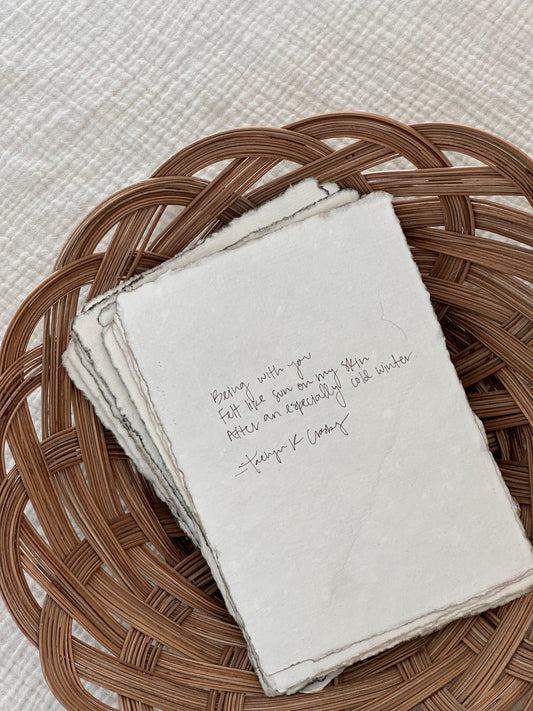 Being with you
Felt like sun on my skin
After an especially cold winter
K